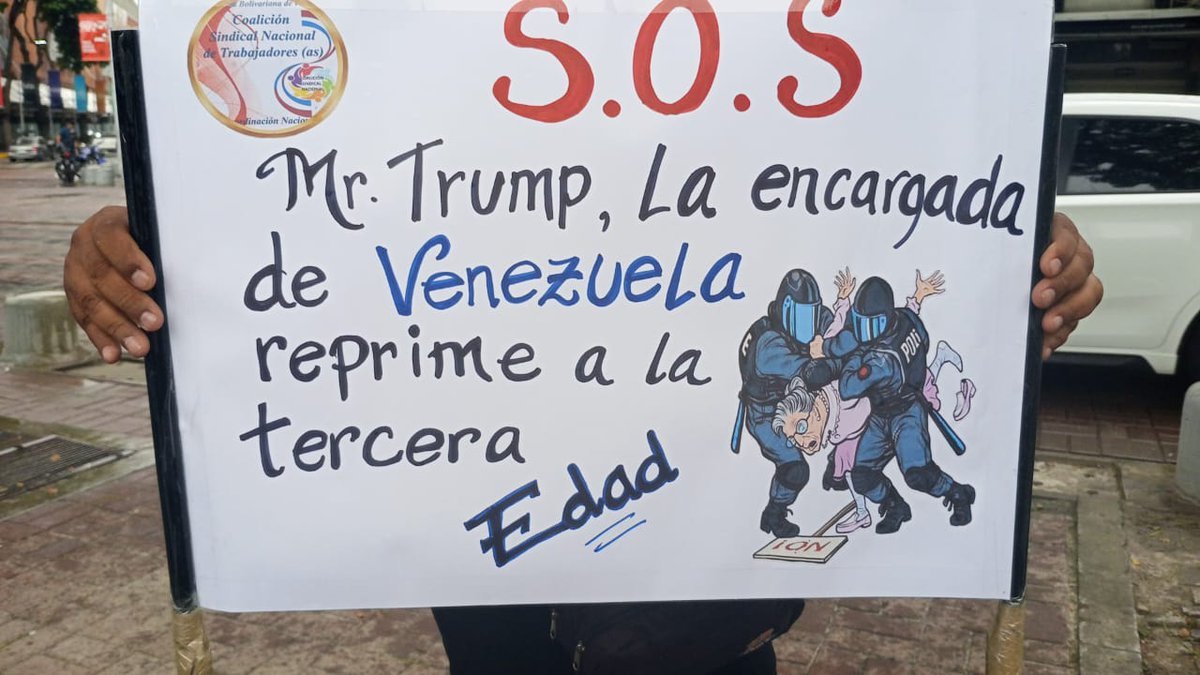 Coalición
Sindical Nacional
de Trabajadores (as)
COALICIÓN
SINDICAL
NACIONAL
S.O.S
Mr. Trump, La encargada
de Venezuela
reprime a la
tercera
Edad
¡NO!